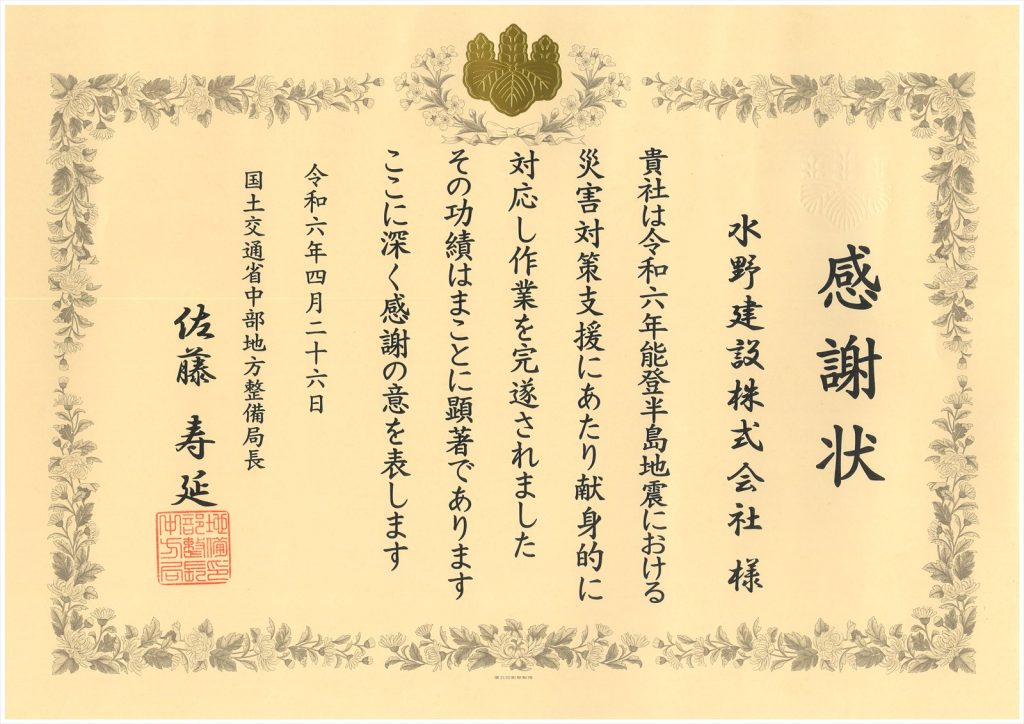 感謝状
水野建設株式会社 様
貴社は令和六年能登半島地震における
災害対策支援にあたり献身的に
対応し作業を完遂されました
その功績はまことに顕著であります
ここに深く感謝の意を表します
令和六年四月二十六日
国土交通省中部地方整備局長
佐藤 寿延